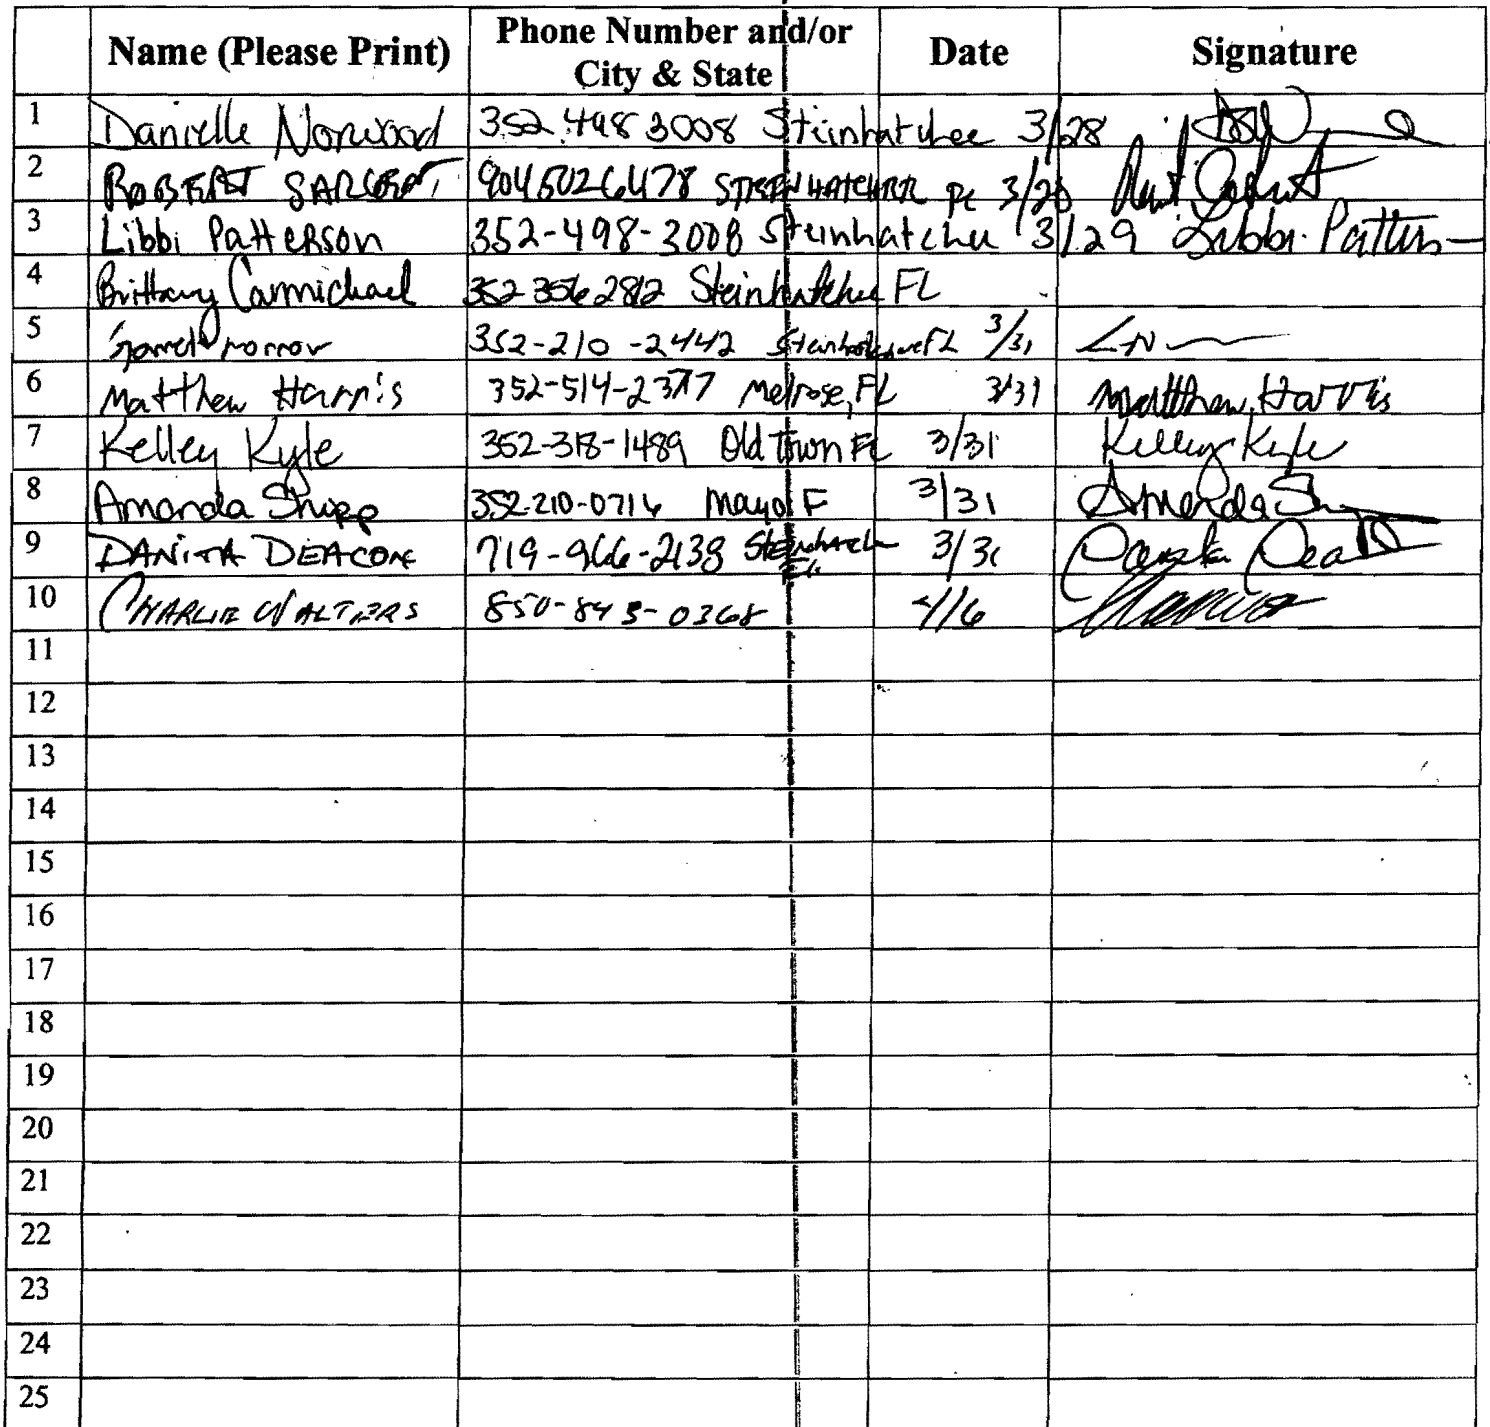 Name (Please Print) Phone Number and/or City & State Date Signature
1 Danielle Norwood 352 498 3008 Steinhatchee 3/28
2 ROBERT SARGENT 9045026478 STEINHATCHEE 3/28
3 Libbi Patterson 352-498-3008 Steinhatchee 3/29 Libbi Patterson
4 Brittany Carmichael 352 356 2812 Steinhatchee FL
5 352-210-2442 Steinhatchee FL 3/31
6 Matthew Harris 352-514-2377 Melrose, FL 3/31 Matthew Harris
7 Kelley Kyle 352-318-1489 Old Town FL 3/31 Kelley Kyle
8 Amanda Shipp 352-210-0716 Mayo F 3/31 Amanda
9 DANITA DEACON 719-966-2138 Steinhatchee 3/31 Danita
10 CHARLIE WALTERS 850-843-0368 4/6
11
12
13
14
15
16
17
18
19
20
21
22
23
24
25